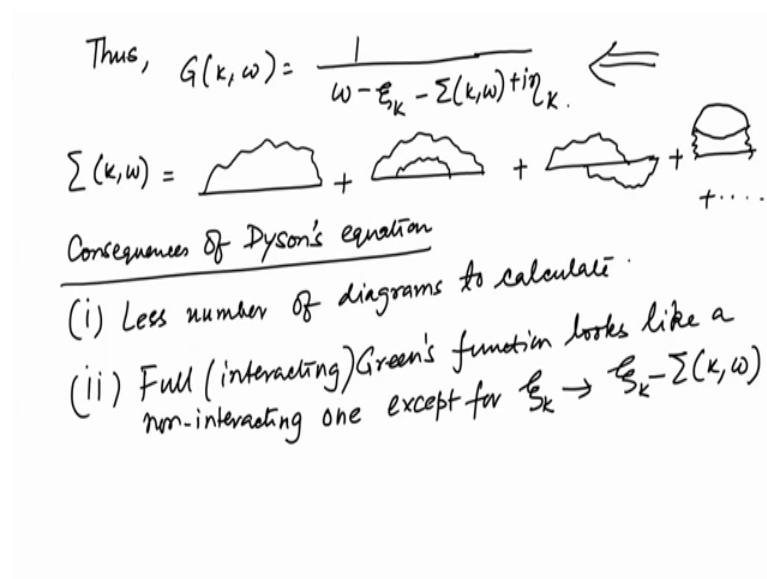 Thus, G(k,ω) = 1 / (ω - ξₖ - Σ(k,ω) + iηₖ) . ⇐
Σ(k,ω) = + + + + ....
Consequences of Dyson's equation
(i) Less number of diagrams to calculate.
(ii) Full (interacting) Green's function looks like a
non-interacting one except for ξₖ → ξₖ - Σ(k,ω)